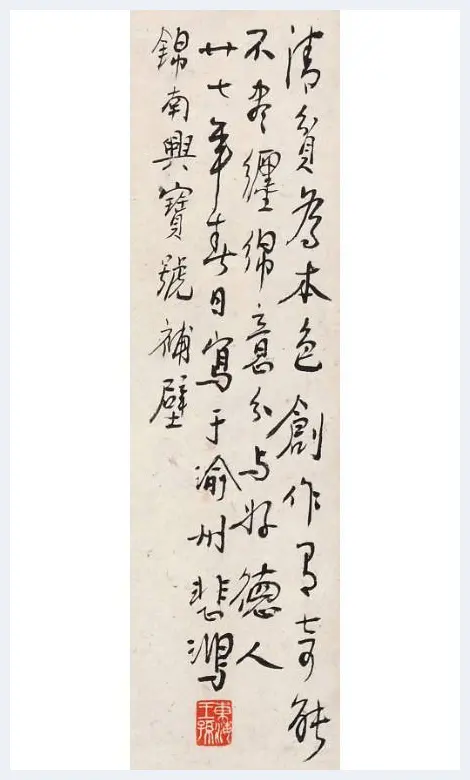 清貧為本色創作有奇能
不盡纏綿意分与好德人
廿七年春日寫于渝州悲鴻
錦南興寶號補壁
東海王孫